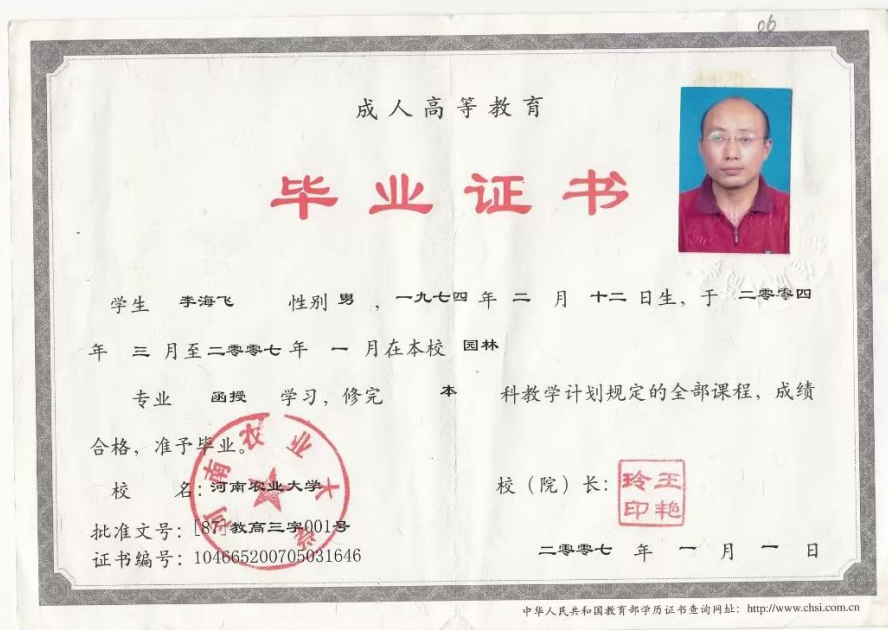 06
成人高等教育
毕业证书
学生 李海飞 性别 男 ，一九七四 年 二 月 十二 日生，于 二零零四
年 三 月至 二零零七 年 一 月在本校 园林
专业 函授 学习，修完 本 科教学计划规定的全部课程，成绩
合格，准予毕业。
校 名：河南农业大学
校（院）长：
王艳玲印
批准文号：[87]教高三字001号
证书编号：104665200705031646
二零零七 年 一 月 一 日
河南农业大学
中华人民共和国教育部学历证书查询网址：http://www.chsi.com.cn